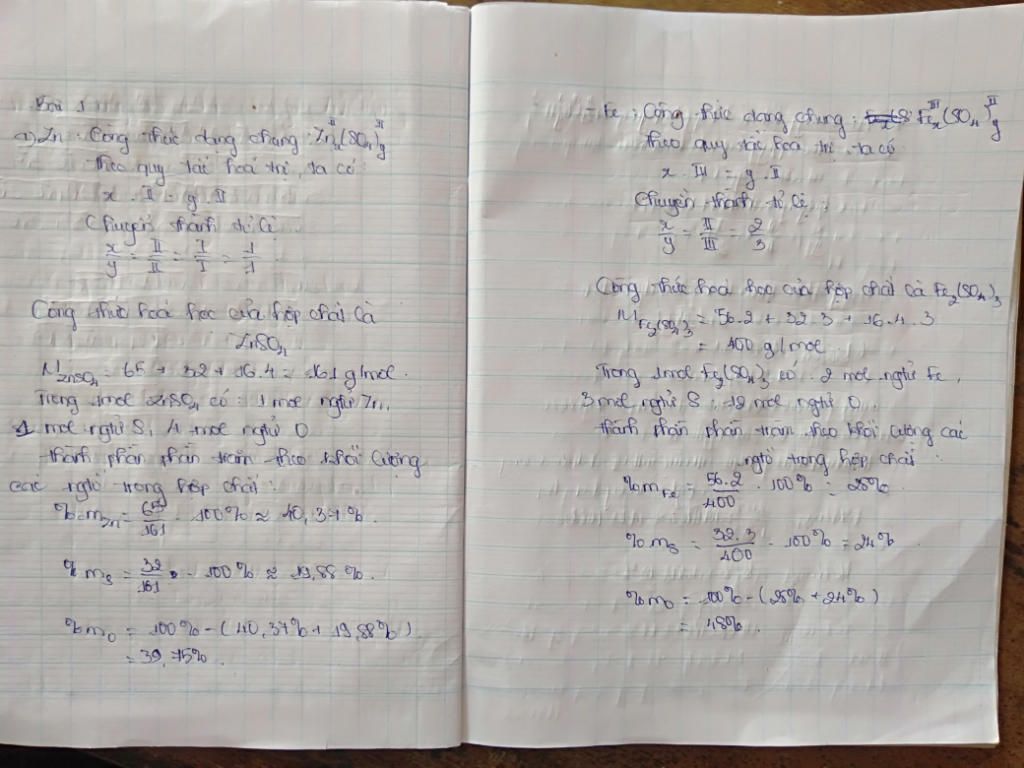 Bài 1
a) Zn : Công thức dạng chung : Zn^II_x(SO4)^II_y
Theo quy tắc hoá trị, ta có :
x . II = y . II
Chuyển thành tỉ lệ :
x/y = II/II = I/I = 1/1
Công thức hoá học của hợp chất là
ZnSO4
M ZnSO4 = 65 + 32 + 16.4 = 161 g/mol.
Trong 1mol ZnSO4 có : 1 mol ngtử Zn,
1 mol ngtử S, 4 mol ngtử O
Thành phần phần trăm theo khối lượng
các ngtố trong hợp chất :
% mZn = 65/161 . 100% ≈ 40,37%.
% mS = 32/161 . 100% ≈ 19,88%.
% mO = 100% - (40,37% + 19,88%)
= 39,75%.
- Fe : Công thức dạng chung : Fe^III_x(SO4)^II_y
Theo quy tắc hoá trị, ta có
x . III = y . II
Chuyển thành tỉ lệ :
x/y = II/III = 2/3
Công thức hoá học của hợp chất là Fe2(SO4)3
M Fe2(SO4)3 = 56.2 + 32.3 + 16.4.3
= 400 g/mol
Trong 1mol Fe2(SO4)3 có : 2 mol ngtử Fe,
3 mol ngtử S, 12 mol ngtử O.
Thành phần phần trăm theo khối lượng các
ngtố trong hợp chất :
% mFe = 56.2/400 . 100% = 28%
% mS = 32.3/400 . 100% = 24%
% mO = 100% - (28% + 24%)
= 48%.